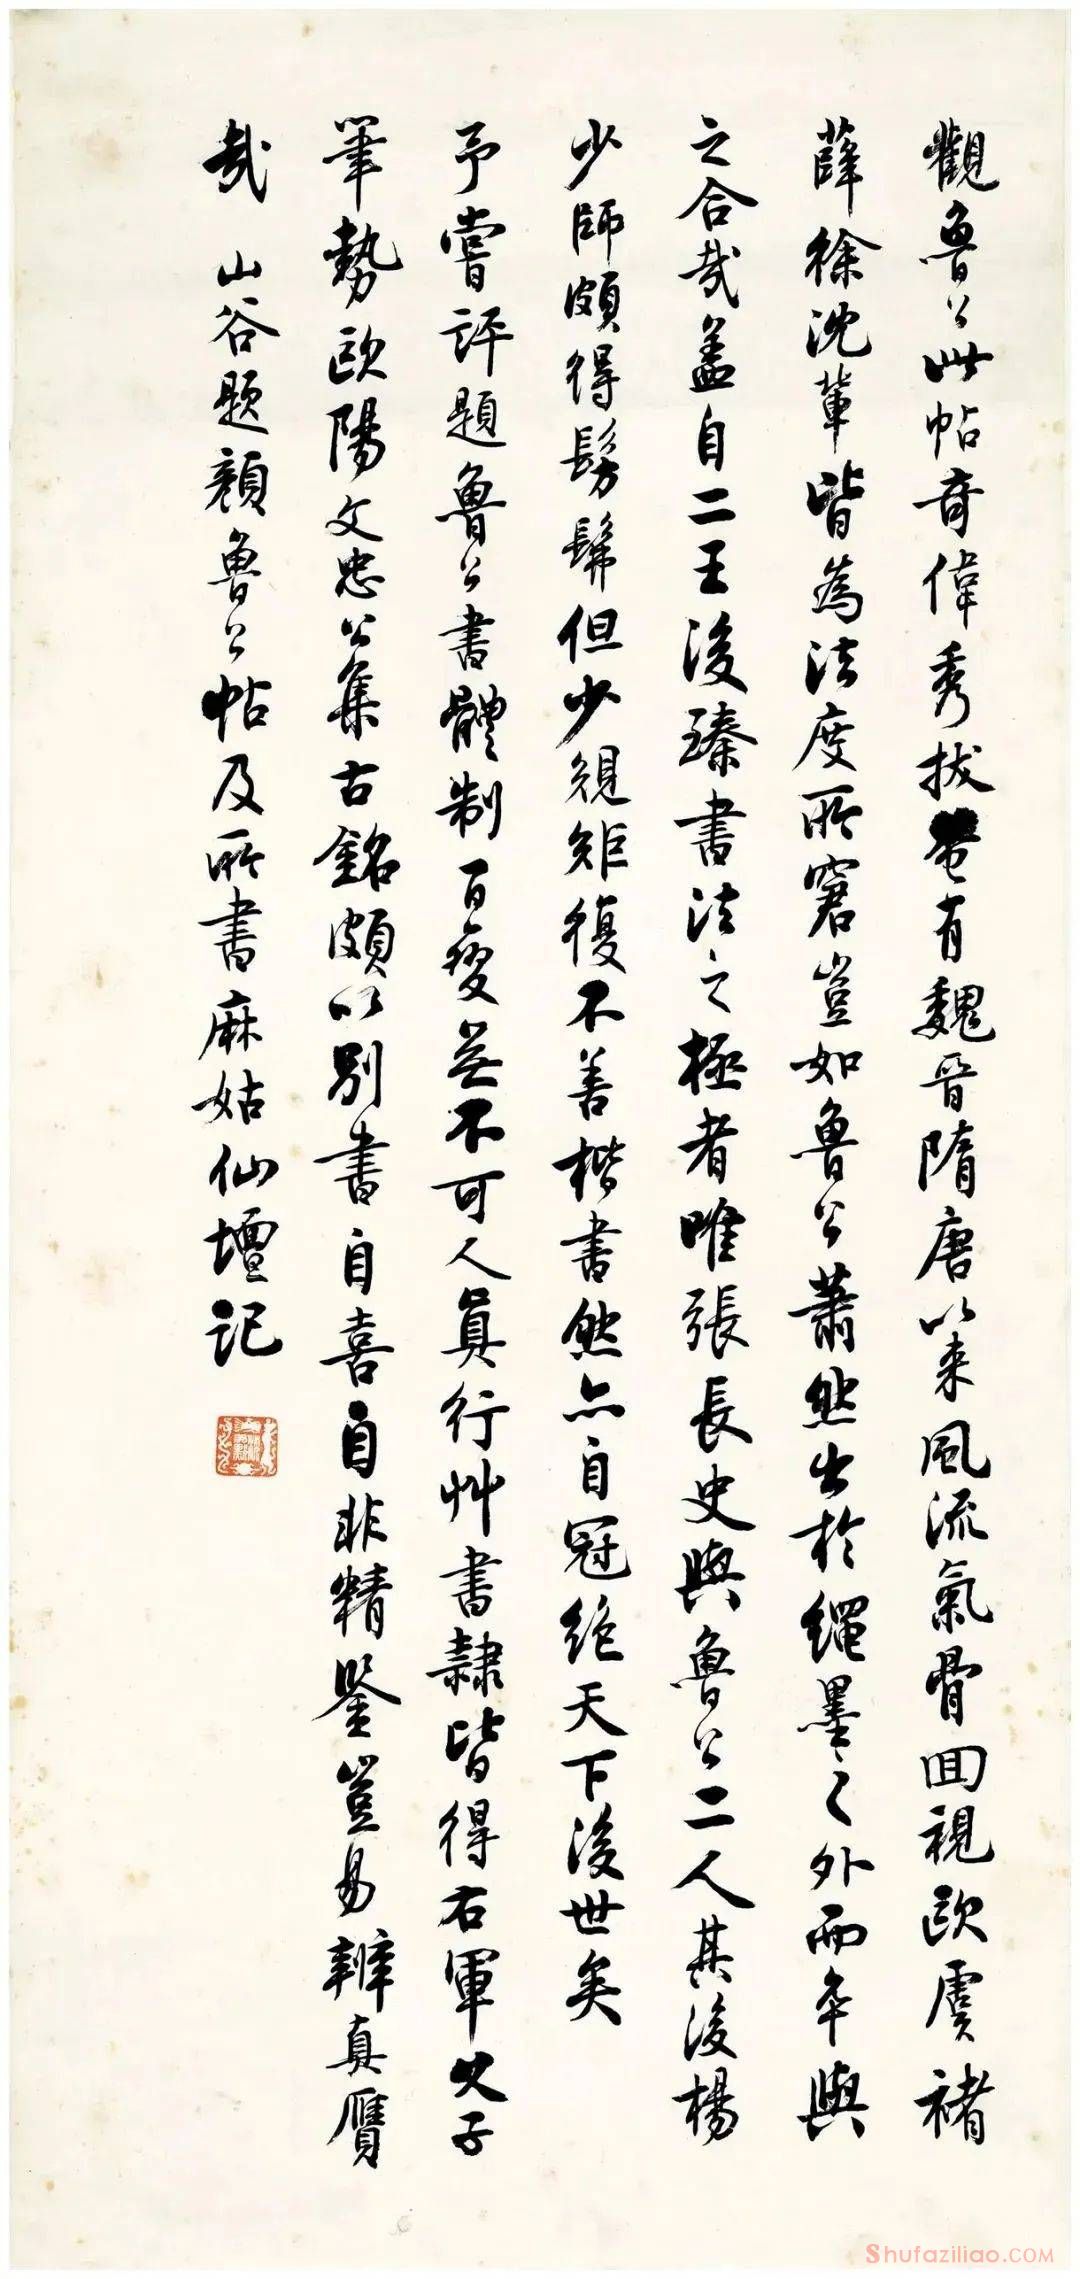 觀魯公此帖奇偉秀拔奄有魏晉隋唐以来風流氣骨回視歐虞褚
薛徐沈輩皆為法度所窘豈如魯公蕭然出於繩墨之外而卒與
之合哉蓋自二王後臻書法之極者唯張長史與魯公二人其後楊
少師頗得髣髴但少規矩復不善楷書然亦自冠絶天下後世矣
予嘗評題魯公書體制百變無不可人真行艸書隸皆得右軍父子
筆勢歐陽文忠公集古銘頗以别書自喜自非精鑒豈易辨真贋
哉 山谷題顔魯公帖及所書麻姑仙壇記
Shufaziliao.COM